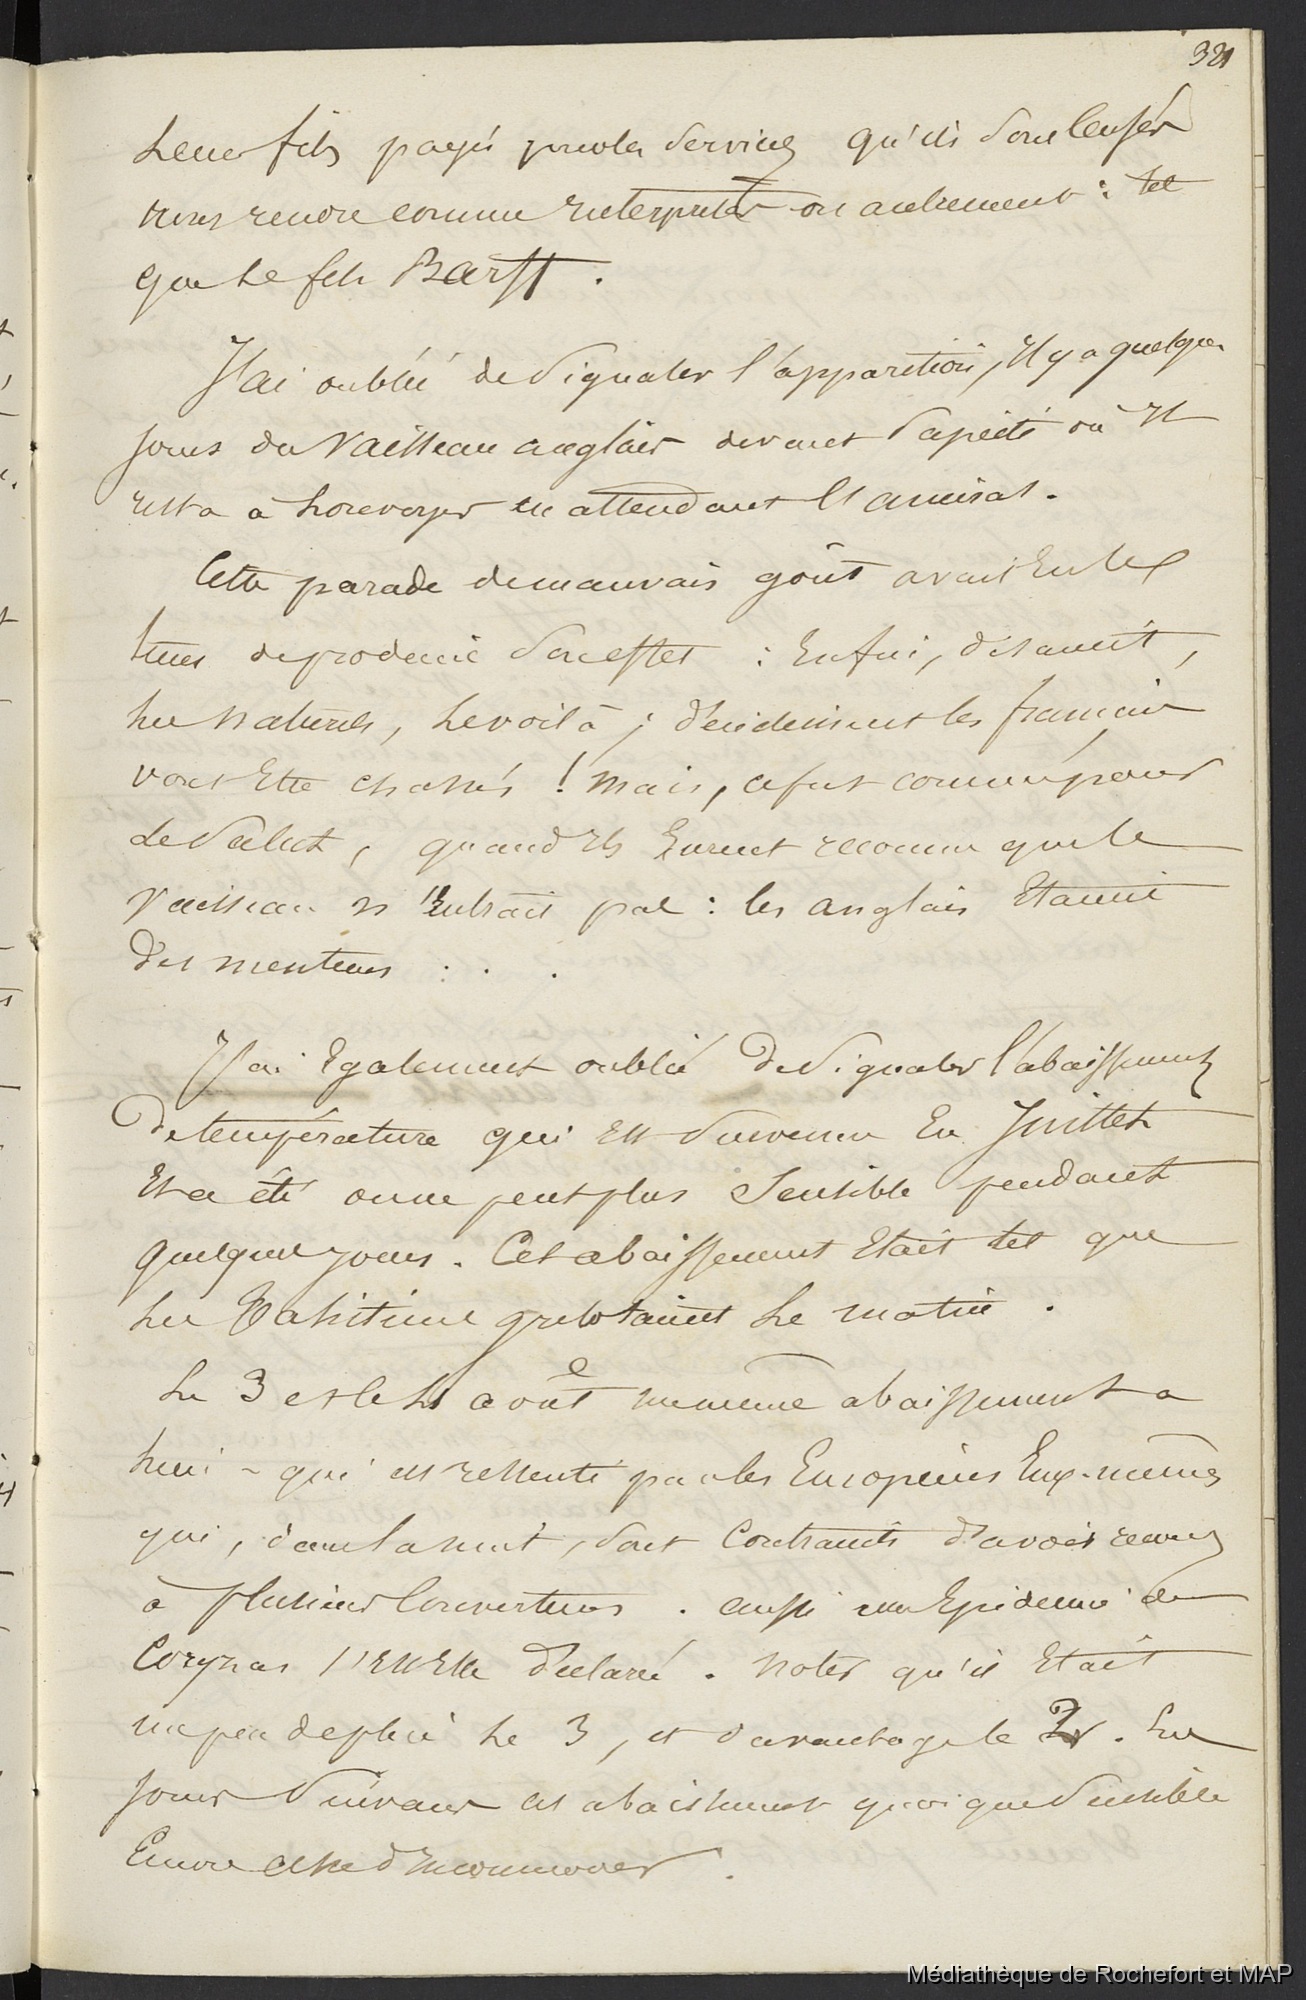 321
leurs fils payés pour les services qu'ils sont censés
nous rendre comme interprètes ou autrement : tel
que le fils Barff.
J'ai oublié de signaler l'apparition, il y a quelques
jours du vaisseau anglais devant Papeete où il
resta à louvoyer en attendant l'amiral.
Cette parade de mauvais goût avait eu le
temps de produire son effet : Enfin, disaient,
les naturels, le voilà ; décidément les français
vont être chassés ! Mais, ce fut comme pour
le salut, quand ils eurent reconnu que le
vaisseau n'entrait pas : les anglais étaient
des menteurs : . .
J'ai également oublié de signaler l'abaissement
de température qui est survenu en Juillet
et a été on ne peut plus sensible pendant
quelques jours. Cet abaissement était tel que
les Tahitiens grelotaient le matin.
Le 3 et le 4 août même abaissement a
lieu - qui est ressenti par les Européens eux-mêmes
qui, dans la nuit, sont contraints d'avoir recours
à plusieurs couvertures. aussi une épidémie de
Coryzas s'est elle déclarée. Notez qu'il était
un peu de pluie le 3, et davantage le 2. Les
jours suivants cet abaissement quoique sensible
encore cesse d'incommoder.
Médiathèque de Rochefort et MAP